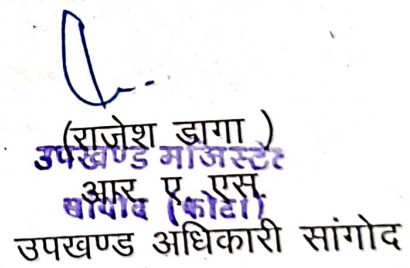 (राजेश डागा )
उपखण्ड मजिस्टेट
आर. ए. एस.
सांगोद (कोटा)
उपखण्ड अधिकारी सांगोद